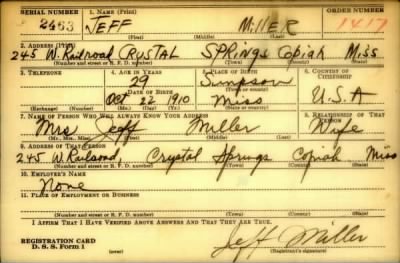 SERIAL NUMBER 1. NAME (Print) ORDER NUMBER
2463 JEFF MILLER 1417
(First) (Middle) (Last)
2. ADDRESS (Print)
245 W. Railroad CRUSTAL SPRINGS Copiah Miss.
(Number and street or R. F. D. number) (Town) (County) (State)
3. TELEPHONE 4. AGE IN YEARS 5. PLACE OF BIRTH 6. COUNTRY OF CITIZENSHIP
29 Simpson
DATE OF BIRTH (Town or county)
Oct 22 1910 Miss U.S.A
(Exchange) (Number) (Mo.) (Day) (Yr.) (State or country)
7. NAME OF PERSON WHO WILL ALWAYS KNOW YOUR ADDRESS 8. RELATIONSHIP OF THAT PERSON
Mrs Jeff Miller Wife
(Mr., Mrs., Miss) (First) (Middle) (Last)
9. ADDRESS OF THAT PERSON
245 W. Railroad Crystal Springs Copiah Miss
(Number and street or R. F. D. number) (Town) (County) (State)
10. EMPLOYER'S NAME
None
11. PLACE OF EMPLOYMENT OR BUSINESS
(Number and street or R. F. D. number) (Town) (County) (State)
I AFFIRM THAT I HAVE VERIFIED ABOVE ANSWERS AND THAT THEY ARE TRUE.
REGISTRATION CARD
D. S. S. Form 1 Jeff Miller
(Registrant's signature)